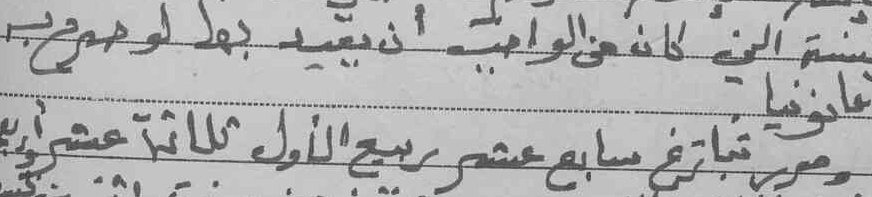 التي كان من الواجب أن يقيد بها لو صرح به
قانونيا
وحرر بتاريخ سابع عشر ربيع الأول ثلاثة عشر